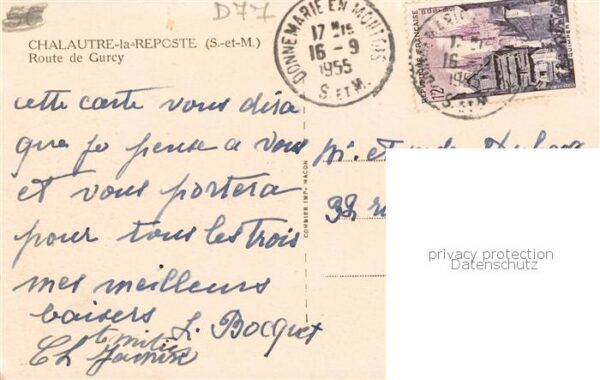 5€
D77
CHALAUTRE-la-REPOSTE (S.-et-M.)
Route de Gurcy
DONNEMARIE EN MONTOIS
17 H 15
16 - 9
1955
S. ET M.
REPUBLIQUE FRANÇAISE
12F
cette carte vous dira
que je pense a vous
et vous portera
pour tous les trois
mes meilleurs
baisers
L. Bocquet
Ch
COMBIER IMP. MACON
Mr et
98
privacy protection
Datenschutz